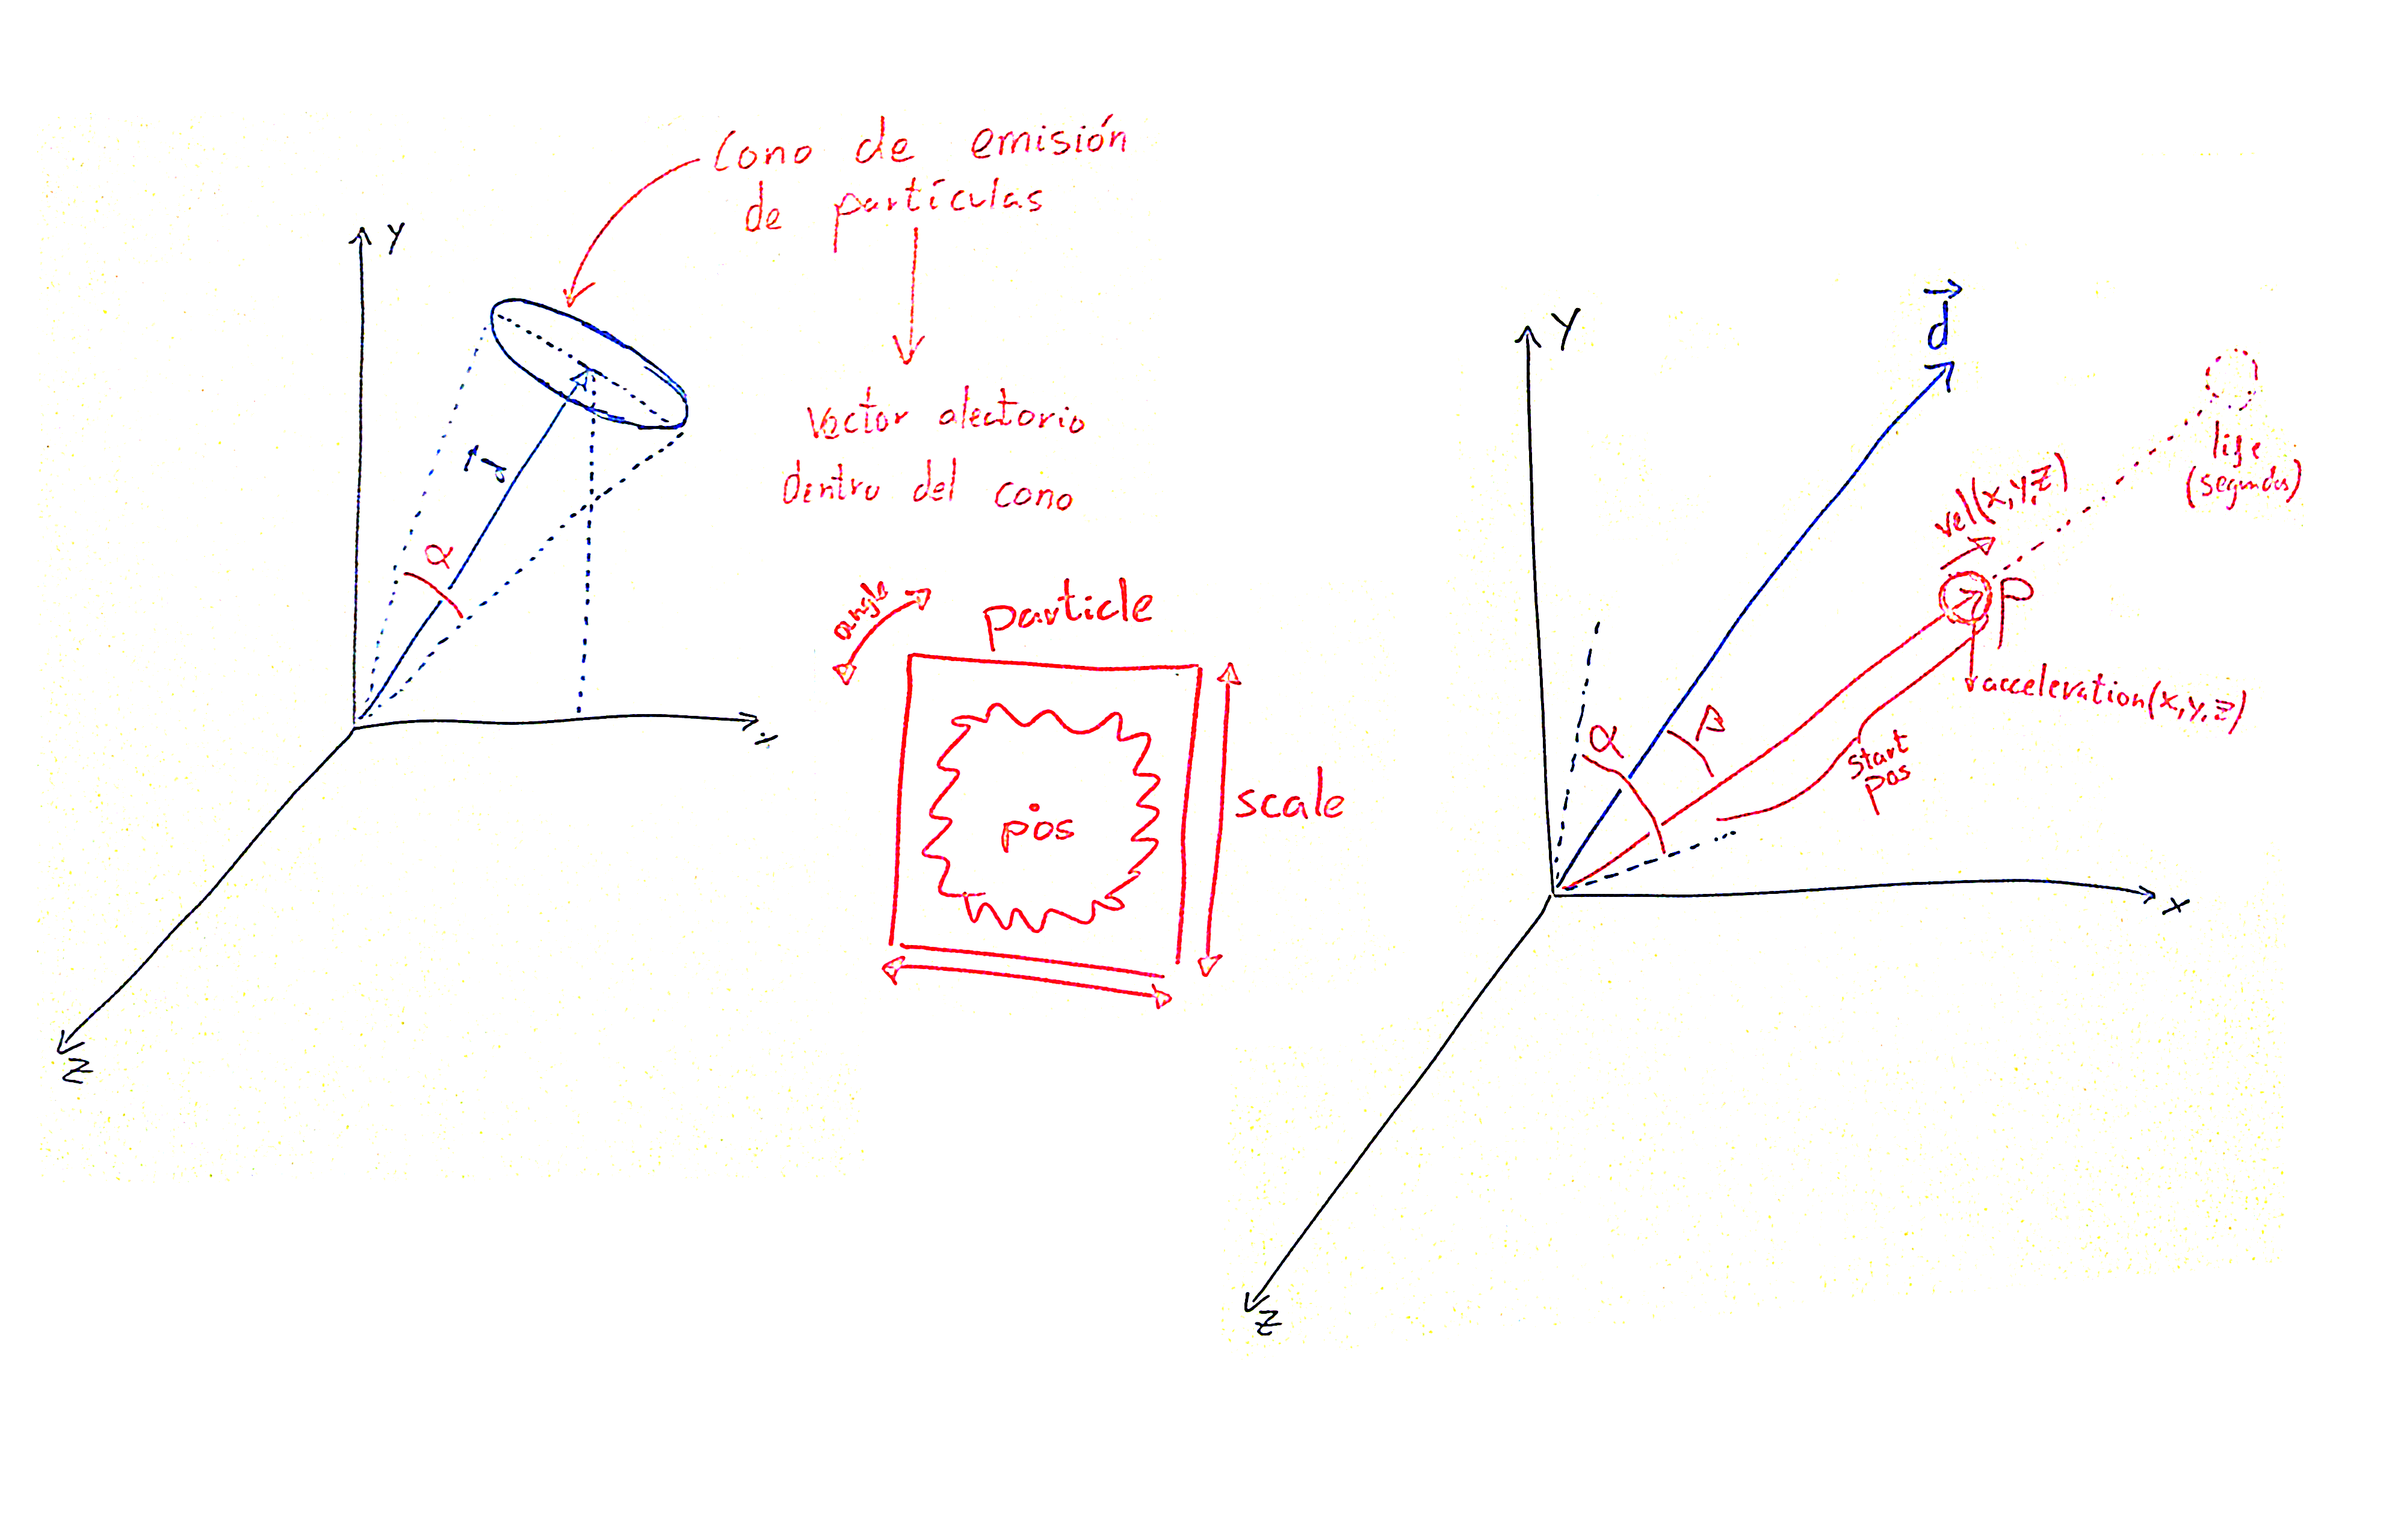 Cono de emisión
de partículas
Vector aleatorio
Dentro del cono
Y
d
α
x
z
angle
particle
pos
scale
Y
d
life
(segundos)
vel(x,y,z)
P
acceleration(x,y,z)
start
pos
α
β
x
z